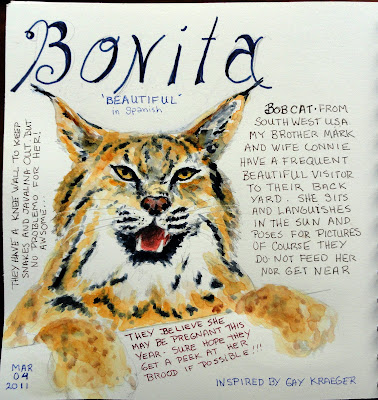 Bonita
"BEAUTIFUL"
in Spanish
THEY HAVE A KNEE WALL TO KEEP
SNAKES AND JAVALINA OUT BUT
NO PROBLEMO FOR HER!!
AWSOME...
BOBCAT · FROM
SOUTHWEST USA
MY BROTHER MARK
AND WIFE CONNIE
HAVE A FREQUENT
BEAUTIFUL VISITOR
TO THEIR BACK
YARD. SHE SITS
AND LANGUISHES
IN THE SUN AND
POSES FOR PICTURES
OF COURSE THEY
DO NOT FEED HER
NOR GET NEAR
THEY BELIEVE SHE
MAY BE PREGNANT THIS
YEAR. SURE HOPE THEY
GET A PEEK AT HER
BROOD IF POSSIBLE!!!
MAR
04
2011
INSPIRED BY GAY KRAEGER